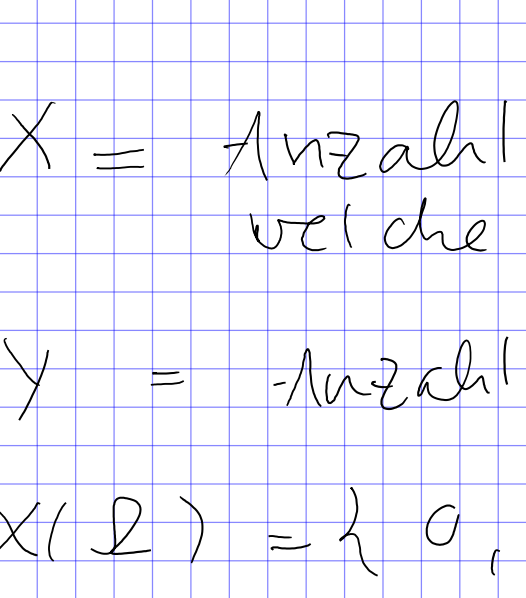 X = Anzahl
welche
Y = Anzahl
X(Ω) = { 0,